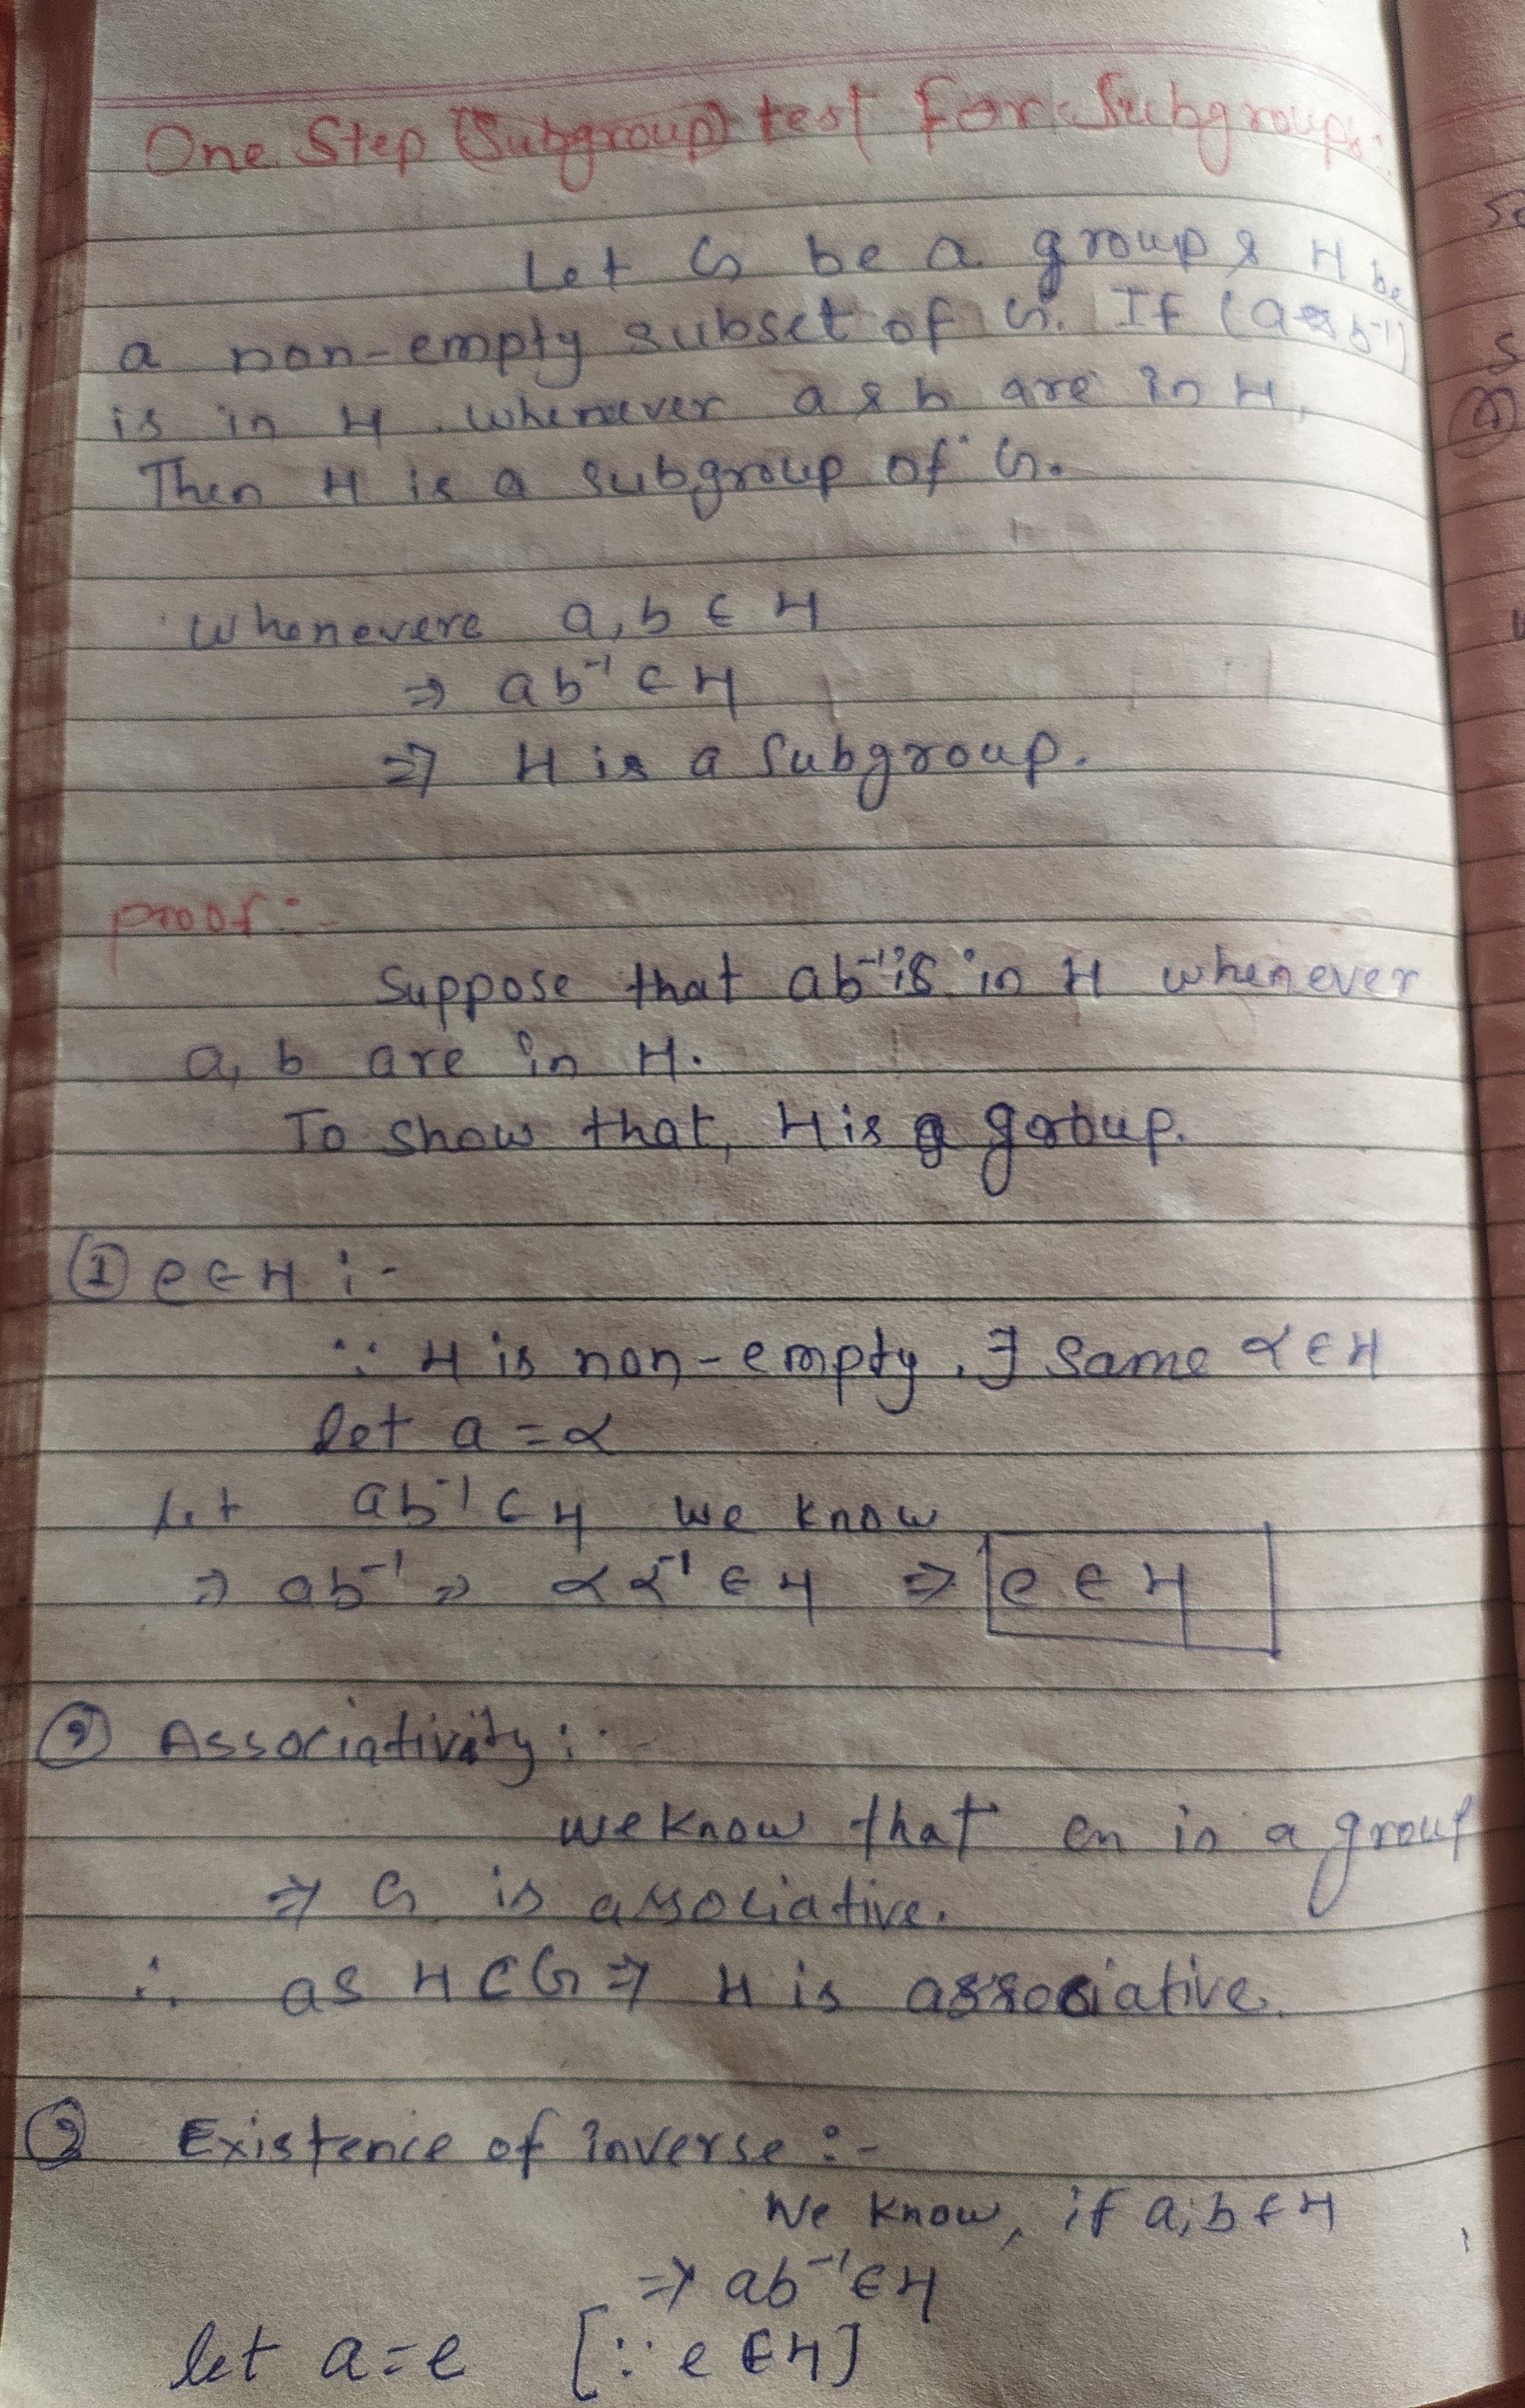 One Step (Subgroup) test for Subgroups.
Let G be a group & H be
a non-empty subset of G. If (a b⁻¹)
is in H whenever a & b are in H,
Then H is a subgroup of G.
Whenevere a, b ∈ H
⇒ ab⁻¹ ∈ H
⇒ H is a subgroup.
proof:-
Suppose that ab⁻¹ is in H whenever
a, b are in H.
To show that, H is a group.
① e ∈ H :-
∵ H is non-empty, ∃ same α ∈ H
let a = α
Let ab⁻¹ ∈ H we know
⇒ ab⁻¹ ⇒ αα⁻¹ ∈ H ⇒ e ∈ H
② Associativity :-
we know that G is a group
⇒ G is associative.
∴ as H ⊂ G ⇒ H is associative.
③ Existence of inverse :-
We know, if a, b ∈ H
⇒ ab⁻¹ ∈ H
let a = e [∵ e ∈ H]